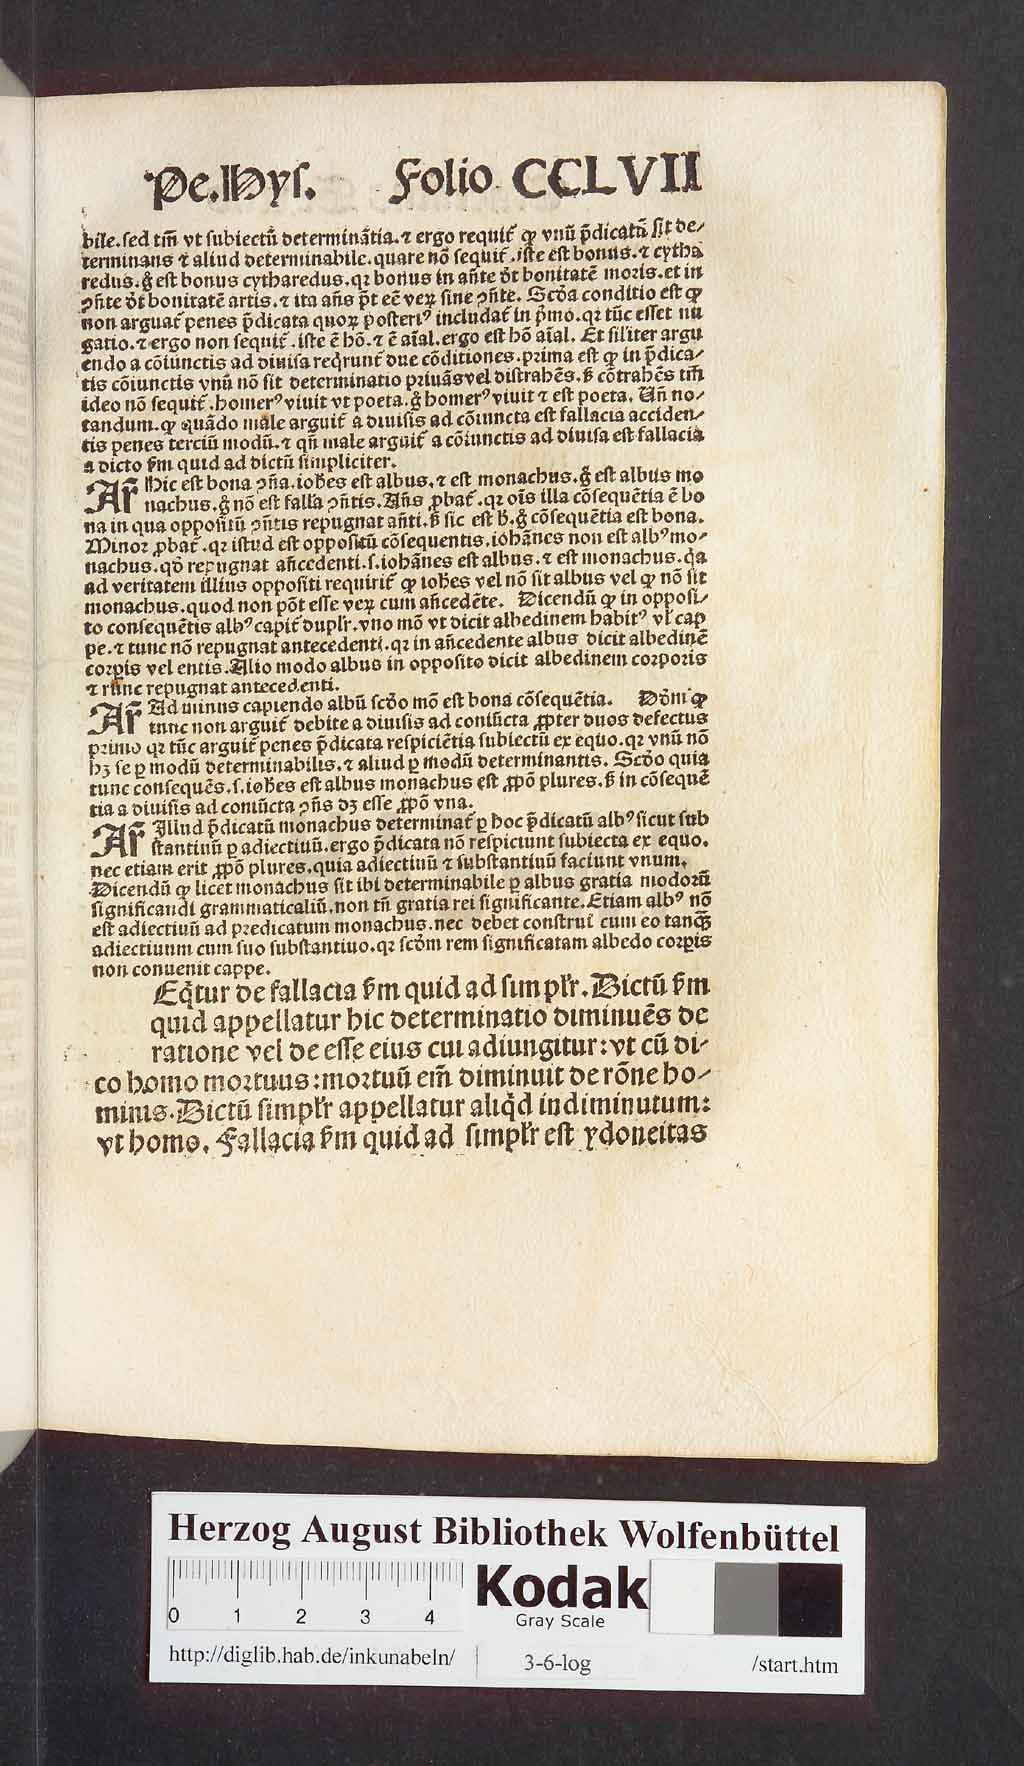 Pe.Hys. Folio CCLVII
bile.sed tm̄ vt subiectū determinātia.⁊ ergo requirit᷑ ꝙ vnū p̄dicatū sit de-
terminans ⁊ aliud determinabile.quare nō sequit᷑.iste est bonus.⁊ cytha
redus.g̊ est bonus cytharedus.qꝛ bonus in ān̄te dr̄t bonitatē moris.et in
ꝯn̄te dr̄t bonitatē artis.⁊ ita an̄s p̄t eē veꝝ sine ꝯn̄te. Scd̄a conditio est ꝙ
non arguat᷑ penes p̄dicata quoꝝ posteriꝰ includat᷑ in p̄mo.qꝛ tūc esset nu
gatio.⁊ ergo non sequit᷑.iste ē hō.⁊ ē aīal.ergo est hō aīal. Et silr̄iter argu
endo a cōiunctis ad diuisa reqͥrunt᷑ due cōditiones.prima est ꝙ in p̄dica-
tis cōiunctis vnū nō sit determinatio priuās vel distrahēs.ꝭ cōtrahēs tm̄
ideo nō sequit᷑.homerꝰ viuit vt poeta.g̊ homerꝰ viuit ⁊ est poeta. Un̄ no-
tandum.ꝙ quādo male arguit᷑ a diuisis ad cōiuncta est fallacia acciden-
tis penes terciū modū.⁊ qn̄ male arguit᷑ a cōiunctis ad diuisa est fallacia
a dicto ẜm quid ad dictū simpliciter.
Ar̄ Hic est bona ꝯn̄a.ioh̄es est albus.⁊ est monachus.g̊ est albus mo
nachus.g̊ nō est falla ꝯn̄tis.Añs ꝓbat᷑.qꝛ oīs illa cōsequētia ē bo
na in qua oppositū ꝯn̄tis repugnat an̄ti.ꝭ sic est h̄.g̊ cōsequētia est bona.
Minor ꝓbat᷑.qꝛ istud est oppositū cōsequentis.iohānes non est albꝰ mo-
nachus.qd̄ repugnat an̄cedenti.s.iohānes est albus.⁊ est monachus.qͣ
ad veritatem illius oppositi requirit᷑ ꝙ ioh̄es vel nō sit albus vel ꝙ nō sit
monachus.quod non pōt esse veꝝ cum an̄cedēte. Dicendū ꝙ in opposi-
to consequētis albꝰ capit᷑ duplr̄.vno mō vt dicit albedinem habitꝰ vl̄ cap
pe.⁊ tunc nō repugnat antecedenti.qꝛ in an̄cedente albus dicit albedinē
corꝑis vel entis.Alio modo albus in opposito dicit albedinem corporis
⁊ tunc repugnat antecedenti.
Ar̄ Ad minus capiendo albū scd̄o mō est bona cōsequētia. Dd̄m ꝙ
tunc non arguit᷑ debite a diuisis ad coniūcta ꝓpter duos defectus
primo qꝛ tūc arguit᷑ penes p̄dicata respiciētia subiectū ex equo.qꝛ vnū nō
hꝫ se ꝑ modū determinabilis.⁊ aliud ꝑ modū determinantis. Scd̄o quia
tunc consequēs.s.ioh̄es est albus monachus est ꝓpō plures.ꝭ in cōsequē
tia a diuisis ad coniūcta ꝯn̄s dꝫ esse ꝓpō vna.
Ar̄ Illud p̄dicatū monachus determinat᷑ ꝑ hoc p̄dicatū albꝰ sicut sub
stantiuū ꝑ adiectiuū.ergo p̄dicata nō respiciunt subiecta ex equo.
nec etiam erit ꝓpō plures.quia adiectiuū ⁊ substantiuū faciunt vnum.
Dicendū ꝙ licet monachus sit ibi determinabile ꝑ albus gratia modorū
significandi grammaticaliū.non tn̄ gratia rei significante.Etiam albꝰ nō
est adiectiuū ad predicatum monachus.nec debet construi cum eo tanqꝫ
adiectiuum cum suo substantiuo.qꝛ scd̄m rem significatam albedo corꝑis
non conuenit cappe.
Eqͥtur de fallacia ẜm quid ad simplr̄. Dictū ẜm
quid appellatur hic determinatio diminuēs de
ratione vel de esse eius cui adiungitur:vt cū di-
co homo mortuus:mortuū em̄ diminuit de rōne ho-
minis.Dictū simplr̄ appellatur aliqͥd indiminutum:
vt homo. Fallacia ẜm quid ad simplr̄ est ydoneitas
Herzog August Bibliothek Wolfenbüttel
0 1 2 3 4
Kodak
Gray Scale
http://diglib.hab.de/inkunabeln/ 3-6-log /start.htm